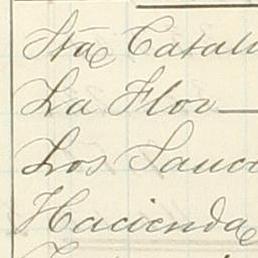 Sta Catal
La Flor
Los Sauc
Hacienda